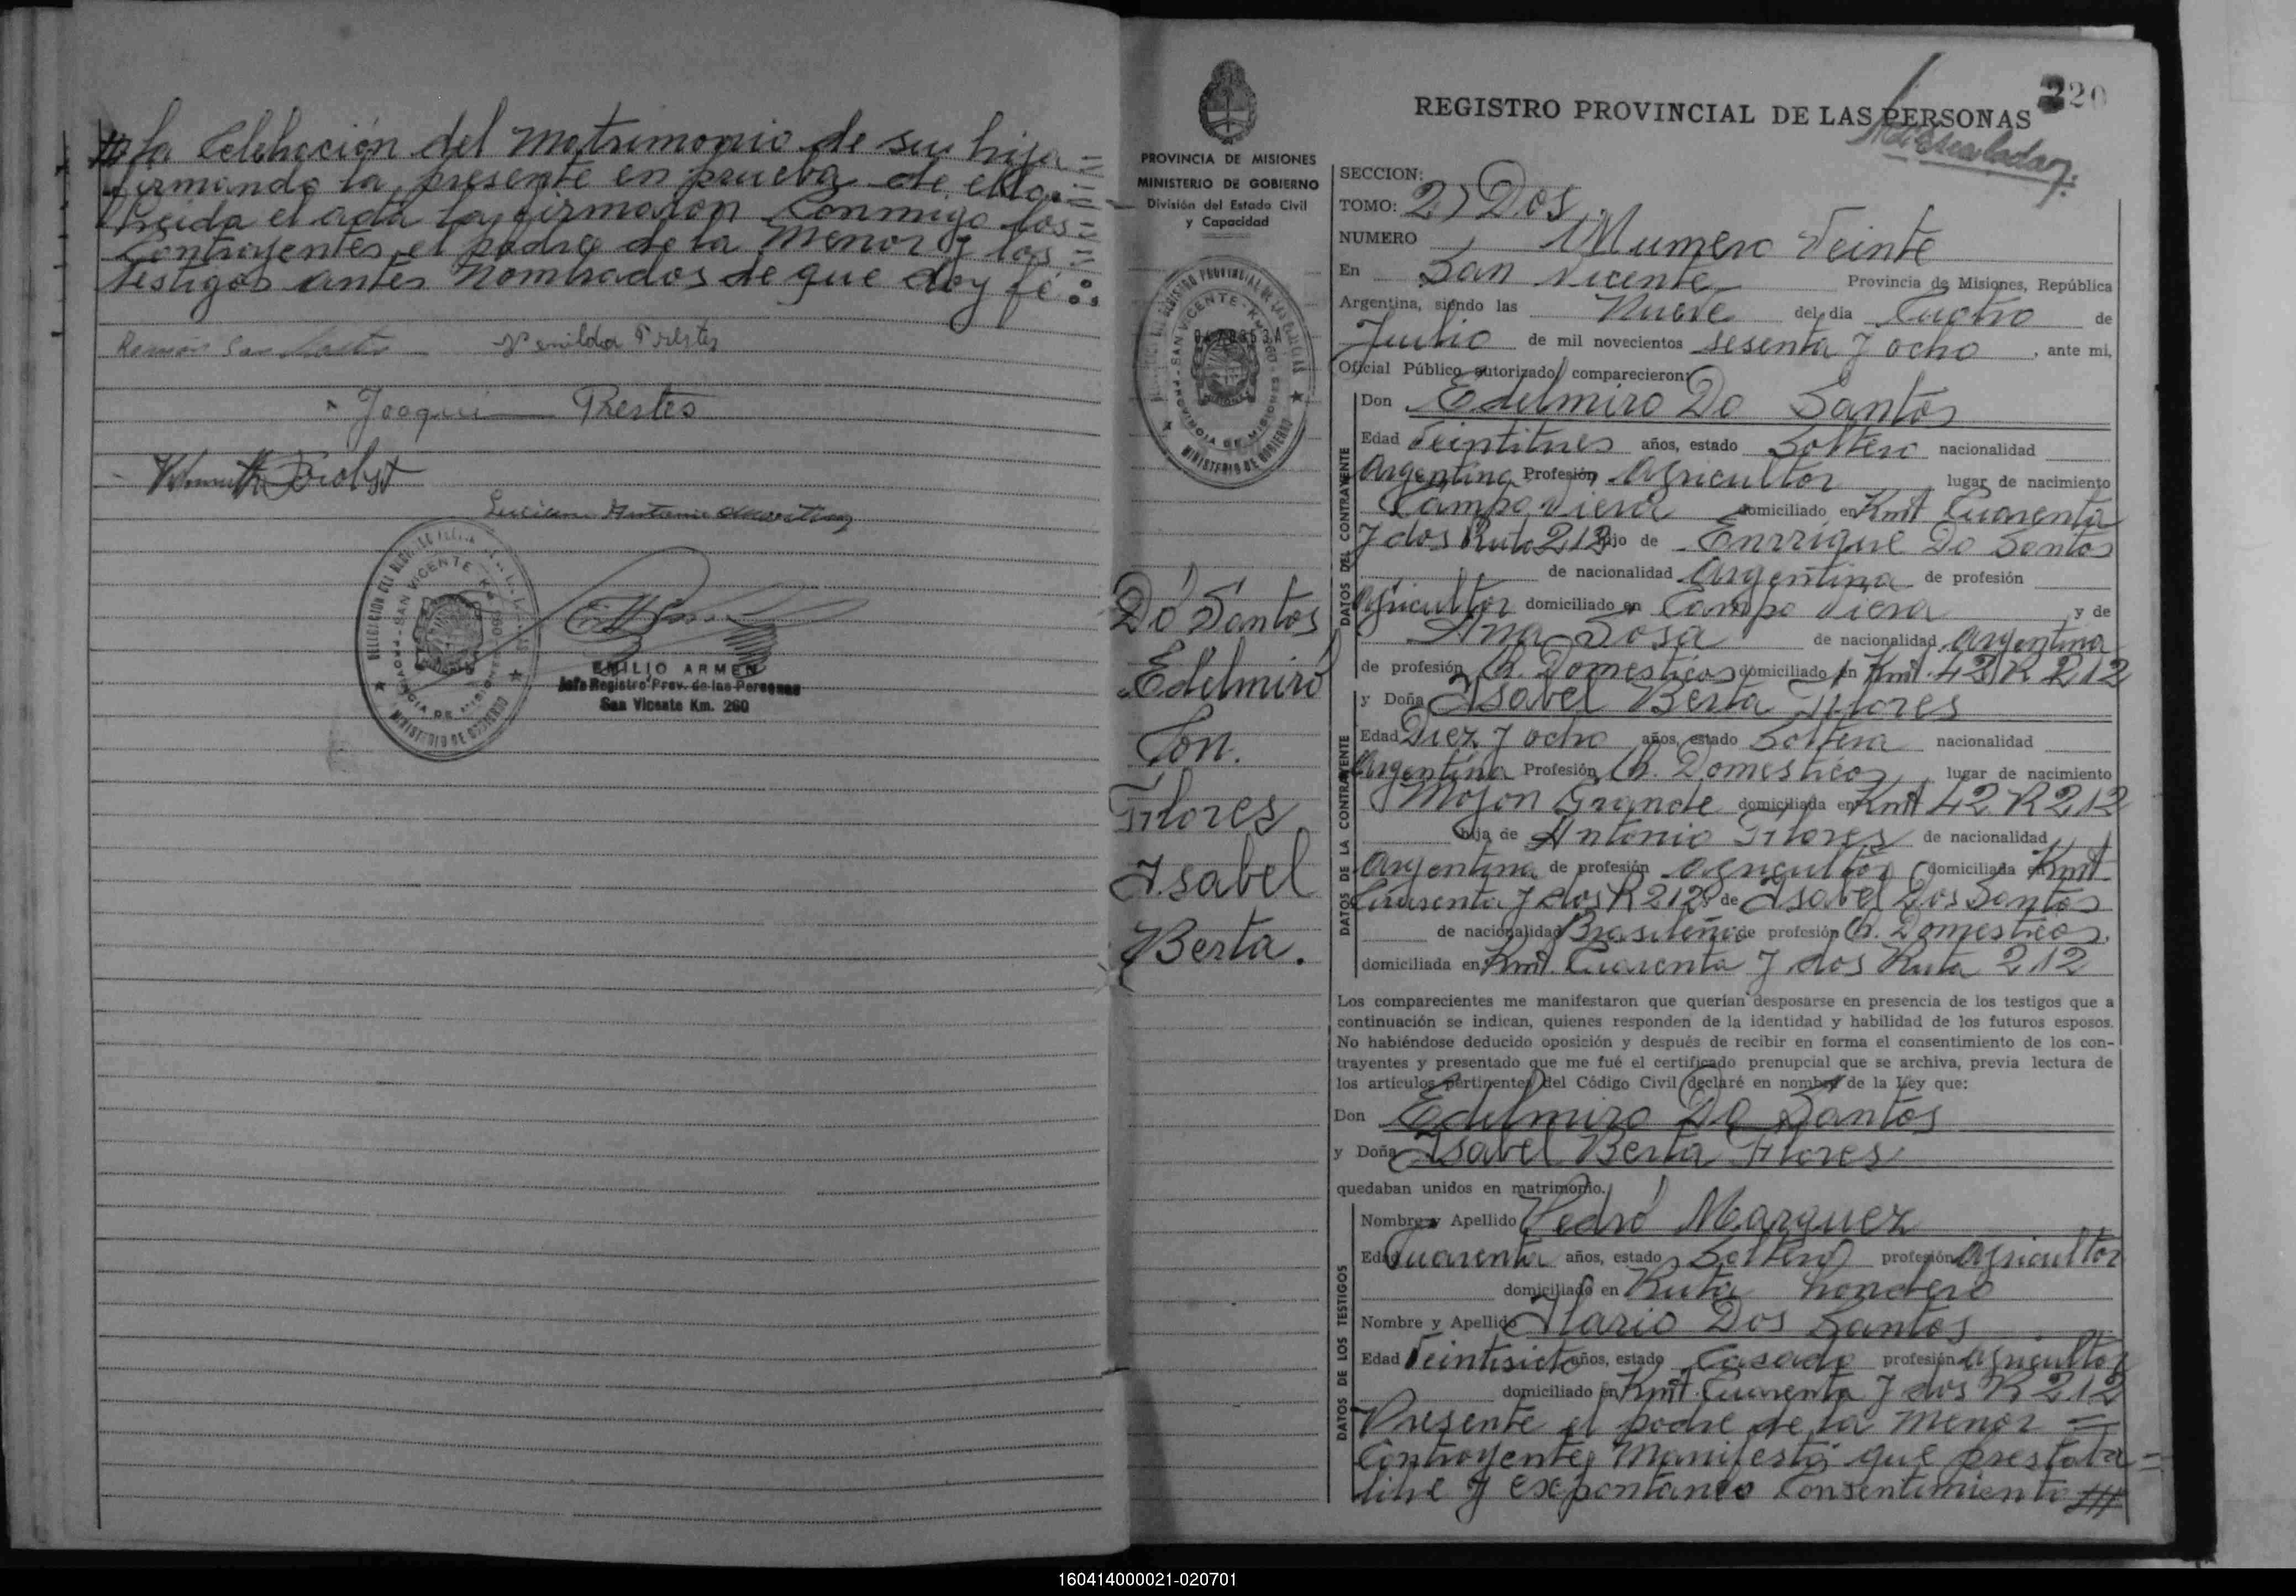 la Celebración del matrimonio de su hija =
firmando la presente en prueba de ello. =
Leida el acta la firmaron conmigo los =
Contrayentes el padre de la menor y los =
testigos antes nombrados de que doy fé
Venilda Prestes
Joaquin Prestes
EMILIO ARMEN
Jefe Registro Prov. de las Personas
San Vicente Km. 260
PROVINCIA DE MISIONES
MINISTERIO DE GOBIERNO
División del Estado Civil
y Capacidad
Do Santos
Edelmiro
Con.
Flores
Isabel
Berta.
220
REGISTRO PROVINCIAL DE LAS PERSONAS
SECCION:
TOMO: 2) Dos.
NUMERO Numero Veinte
En San Vicente Provincia de Misiones, República
Argentina, siendo las Nueve del dia Cuatro de
Julio de mil novecientos sesenta y ocho, ante mi,
Oficial Público autorizado, comparecieron:
DATOS DEL CONTRAYENTE
Don Edelmiro Do Santos
Edad Veintitres años, estado Soltero nacionalidad
Argentina Profesión agricultor lugar de nacimiento
Campo Viera domiciliado en Kmt Cuarenta
y dos Ruta 212 hijo de Enrrique Do Santos
de nacionalidad Argentina de profesión
agricultor domiciliado en Campo Viera y de
Ana Sosa de nacionalidad argentina
de profesión Q. Domesticos domiciliado en Kmt. 42 R 212
DATOS DE LA CONTRAYENTE
y Doña Isabel Berta Flores
Edad Diez y ocho años, estado Soltera nacionalidad
Argentina Profesión Q. Domesticos lugar de nacimiento
Mojon Grande domiciliada en Kmt 42 R 212
hija de Antonio Flores de nacionalidad
argentina de profesión agricultor domiciliada en Kmt
Cuarenta y dos R 212 y de Isabel Dos Santos
de nacionalidad Brasileña de profesión Q. Domesticos.
domiciliada en Kmt. Cuarenta y dos Ruta 212
Los comparecientes me manifestaron que querían desposarse en presencia de los testigos que a
continuación se indican, quienes responden de la identidad y habilidad de los futuros esposos.
No habiéndose deducido oposición y después de recibir en forma el consentimiento de los con-
trayentes y presentado que me fué el certificado prenupcial que se archiva, previa lectura de
los artículos pertinentes del Código Civil declaré en nombre de la Ley que:
Don Edelmiro Do Santos
y Doña Isabel Berta Flores
quedaban unidos en matrimonio.
DATOS DE LOS TESTIGOS
Nombre y Apellido Pedro Marquez
Edad Cuarenta años, estado Soltero profesión agricultor
domiciliado en Ruta
Nombre y Apellido Ilario Dos Santos
Edad Veintisiete años, estado Casado profesión agricultor
domiciliado en Kmt. Cuarenta y dos R 212
Presente el padre de la menor =
Contrayente, Manifestó que prestaba =
libre y expontaneo Consentimiento
160414000021-020701